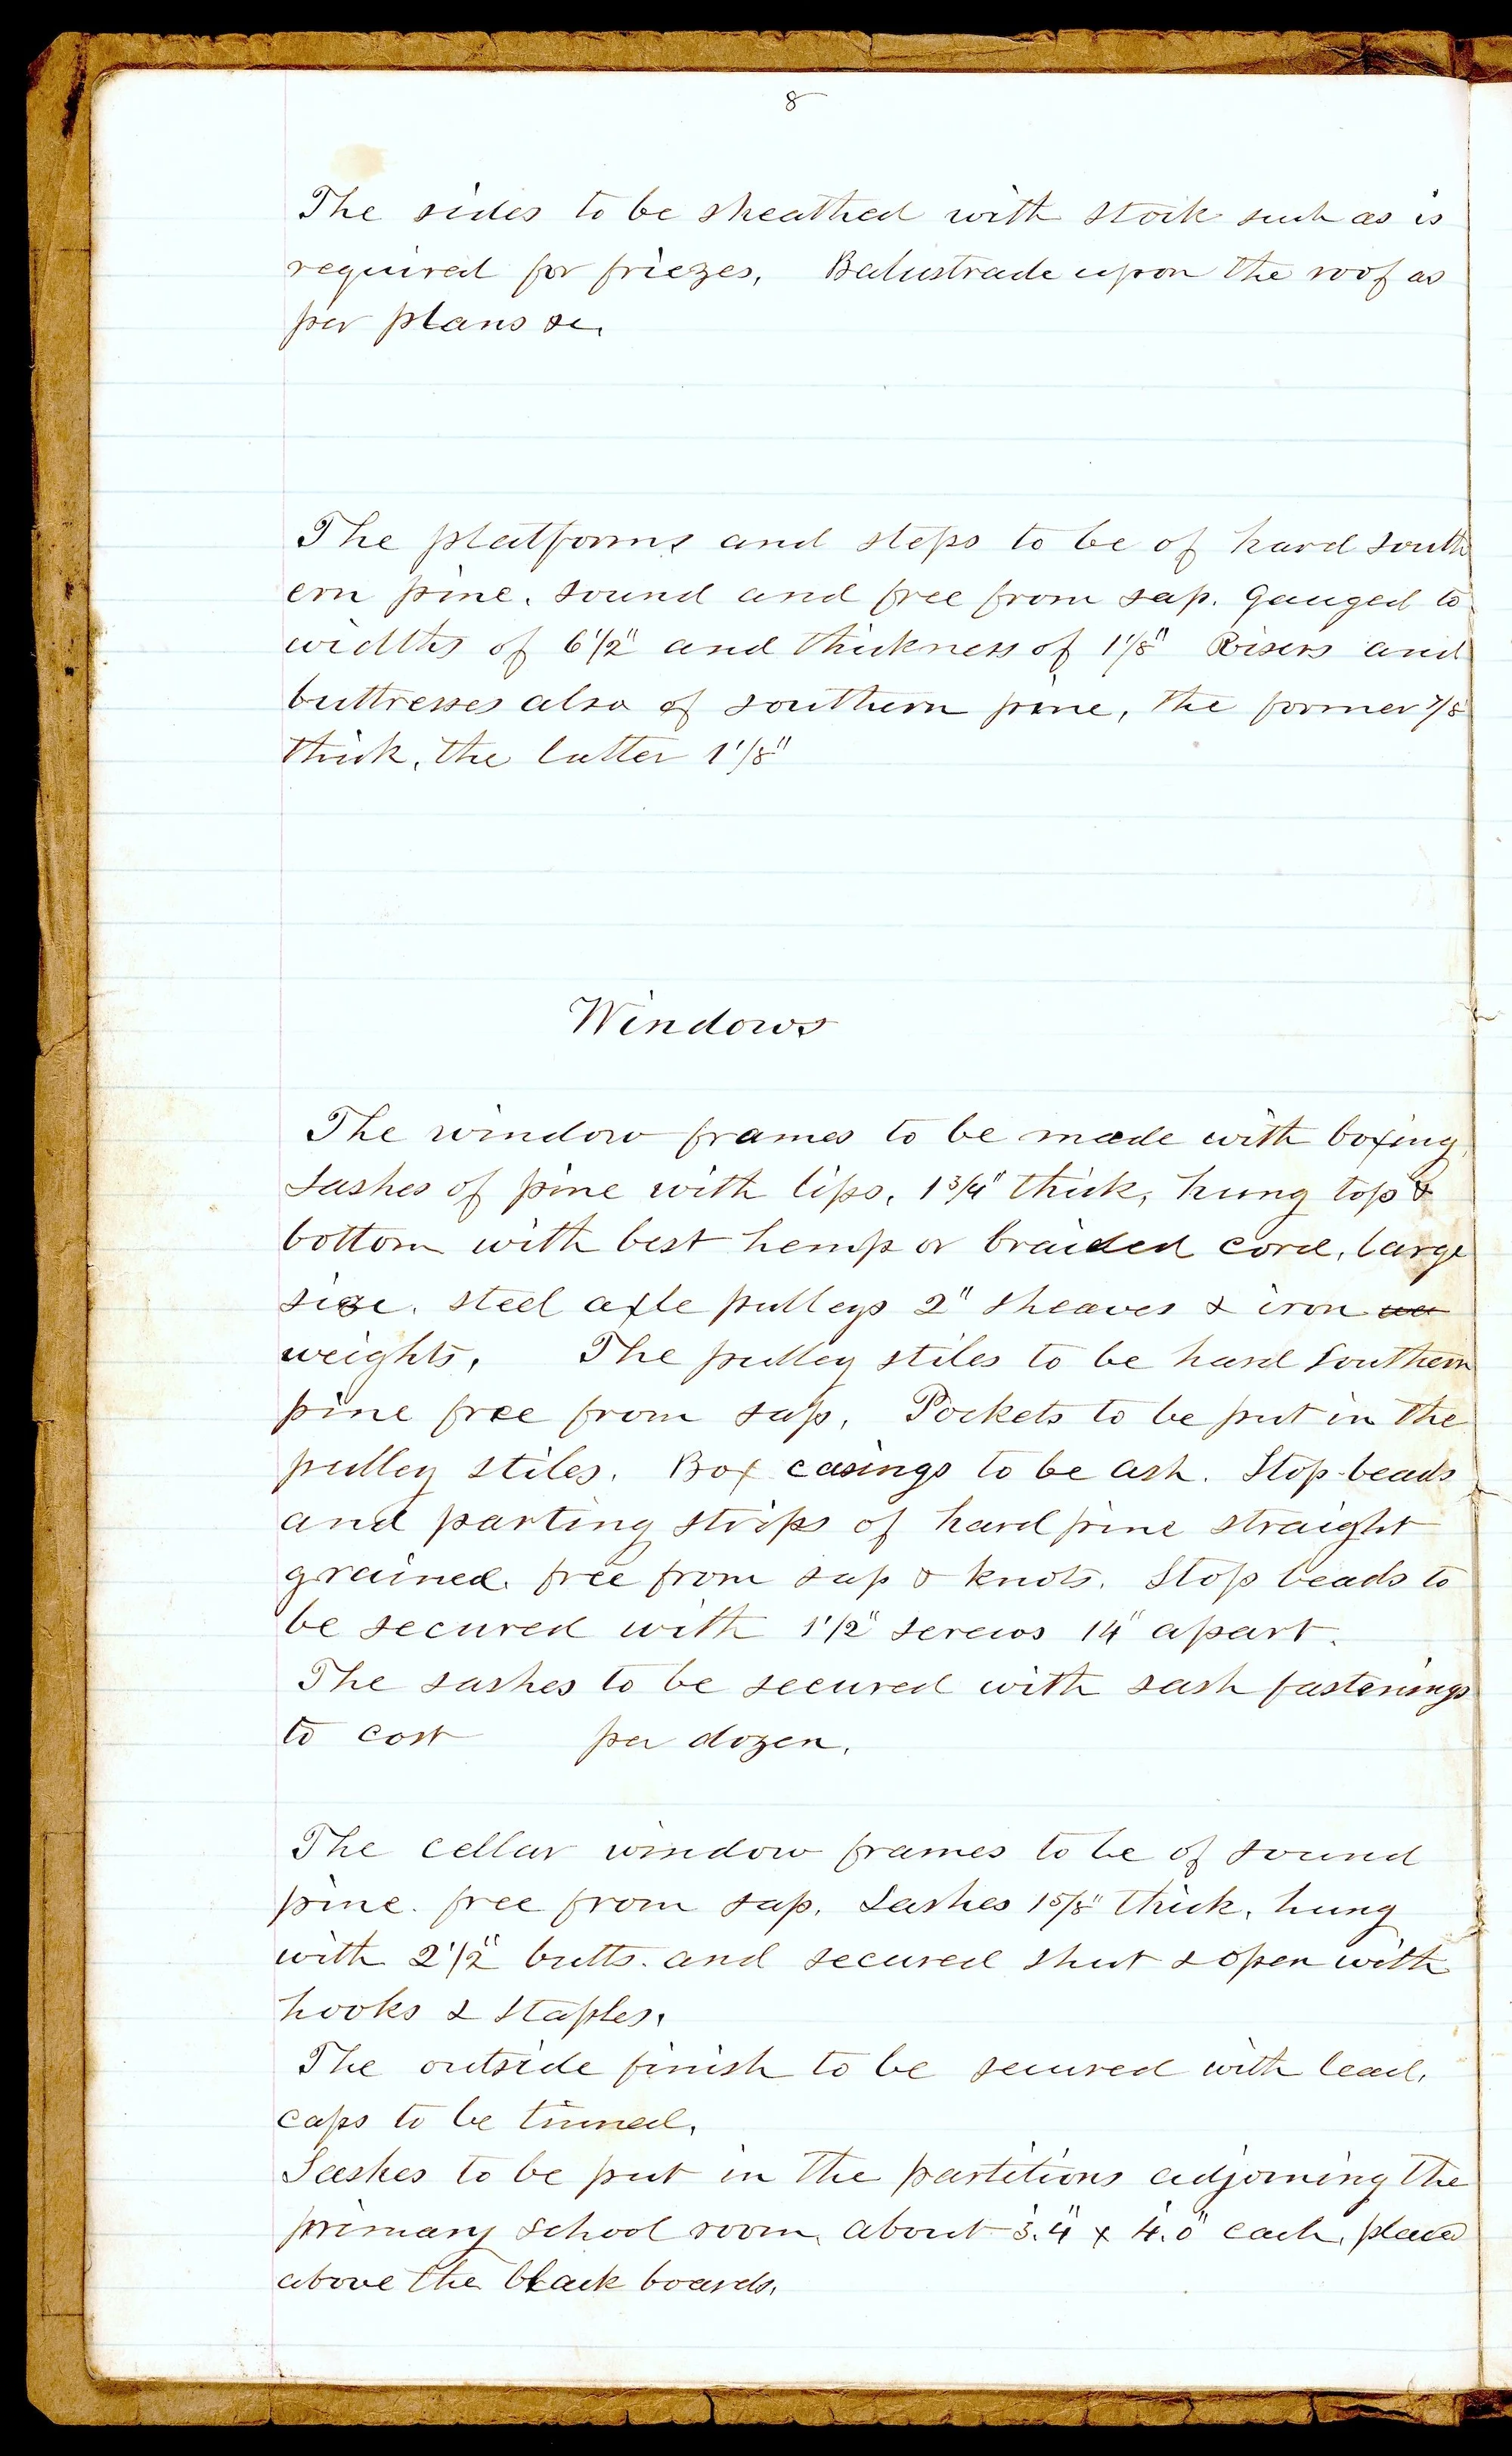 8
The sides to be sheathed with stock such as is
required for friezes, Balustrade upon the roof as
per plans &c.
The platforms and steps to be of hard south
ern pine, sound and free from sap. Gauged to
widths of 6 1/2" and thickness of 1 1/8" Risers and
buttresses also of southern pine, the former 7/8
thick, the latter 1 1/8"
Windows
The window frames to be made with boxing,
Sashes of pine with lips, 1 3/4" thick, hung top &
bottom with best hemp or braided cord, large
size, steel axle pulleys 2" sheaves & iron we
weights, The pulley stiles to be hard Southern
pine free from sap, Pockets to be put in the
pulley stiles. Box casings to be ash. Stop-beads
and parting strips of hard pine straight
grained, free from sap & knots. Stop beads to
be secured with 1 1/2" screws 14" apart.
The sashes to be secured with sash fastenings
to cost per dozen.
The cellar window frames to be of sound
pine, free from sap. Sashes 1 5/8" thick, hung
with 2 1/2" butts and secured shut & open with
hooks & staples.
The outside finish to be secured with lead,
caps to be tinned.
Sashes to be put in the partitions adjoining the
primary school room, about 3'.4" x 4'.0" each, placed
above the black boards.